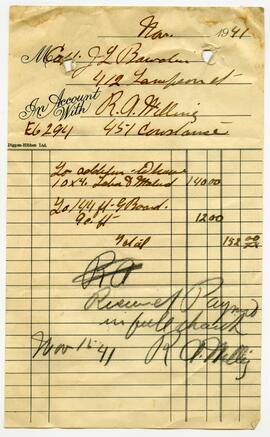 Nov. 1941
M Capt J L
412 Lampson st
In Account
With R. A. Willing
E6294 451 Constance
Diggon-Hibben Ltd.
To addition
10x9 Labor & Material 140 00
To 144 ft G Board
90 ft 12 00
Total 152 00
Received Payment
in full
Nov 15 41 R A Willing